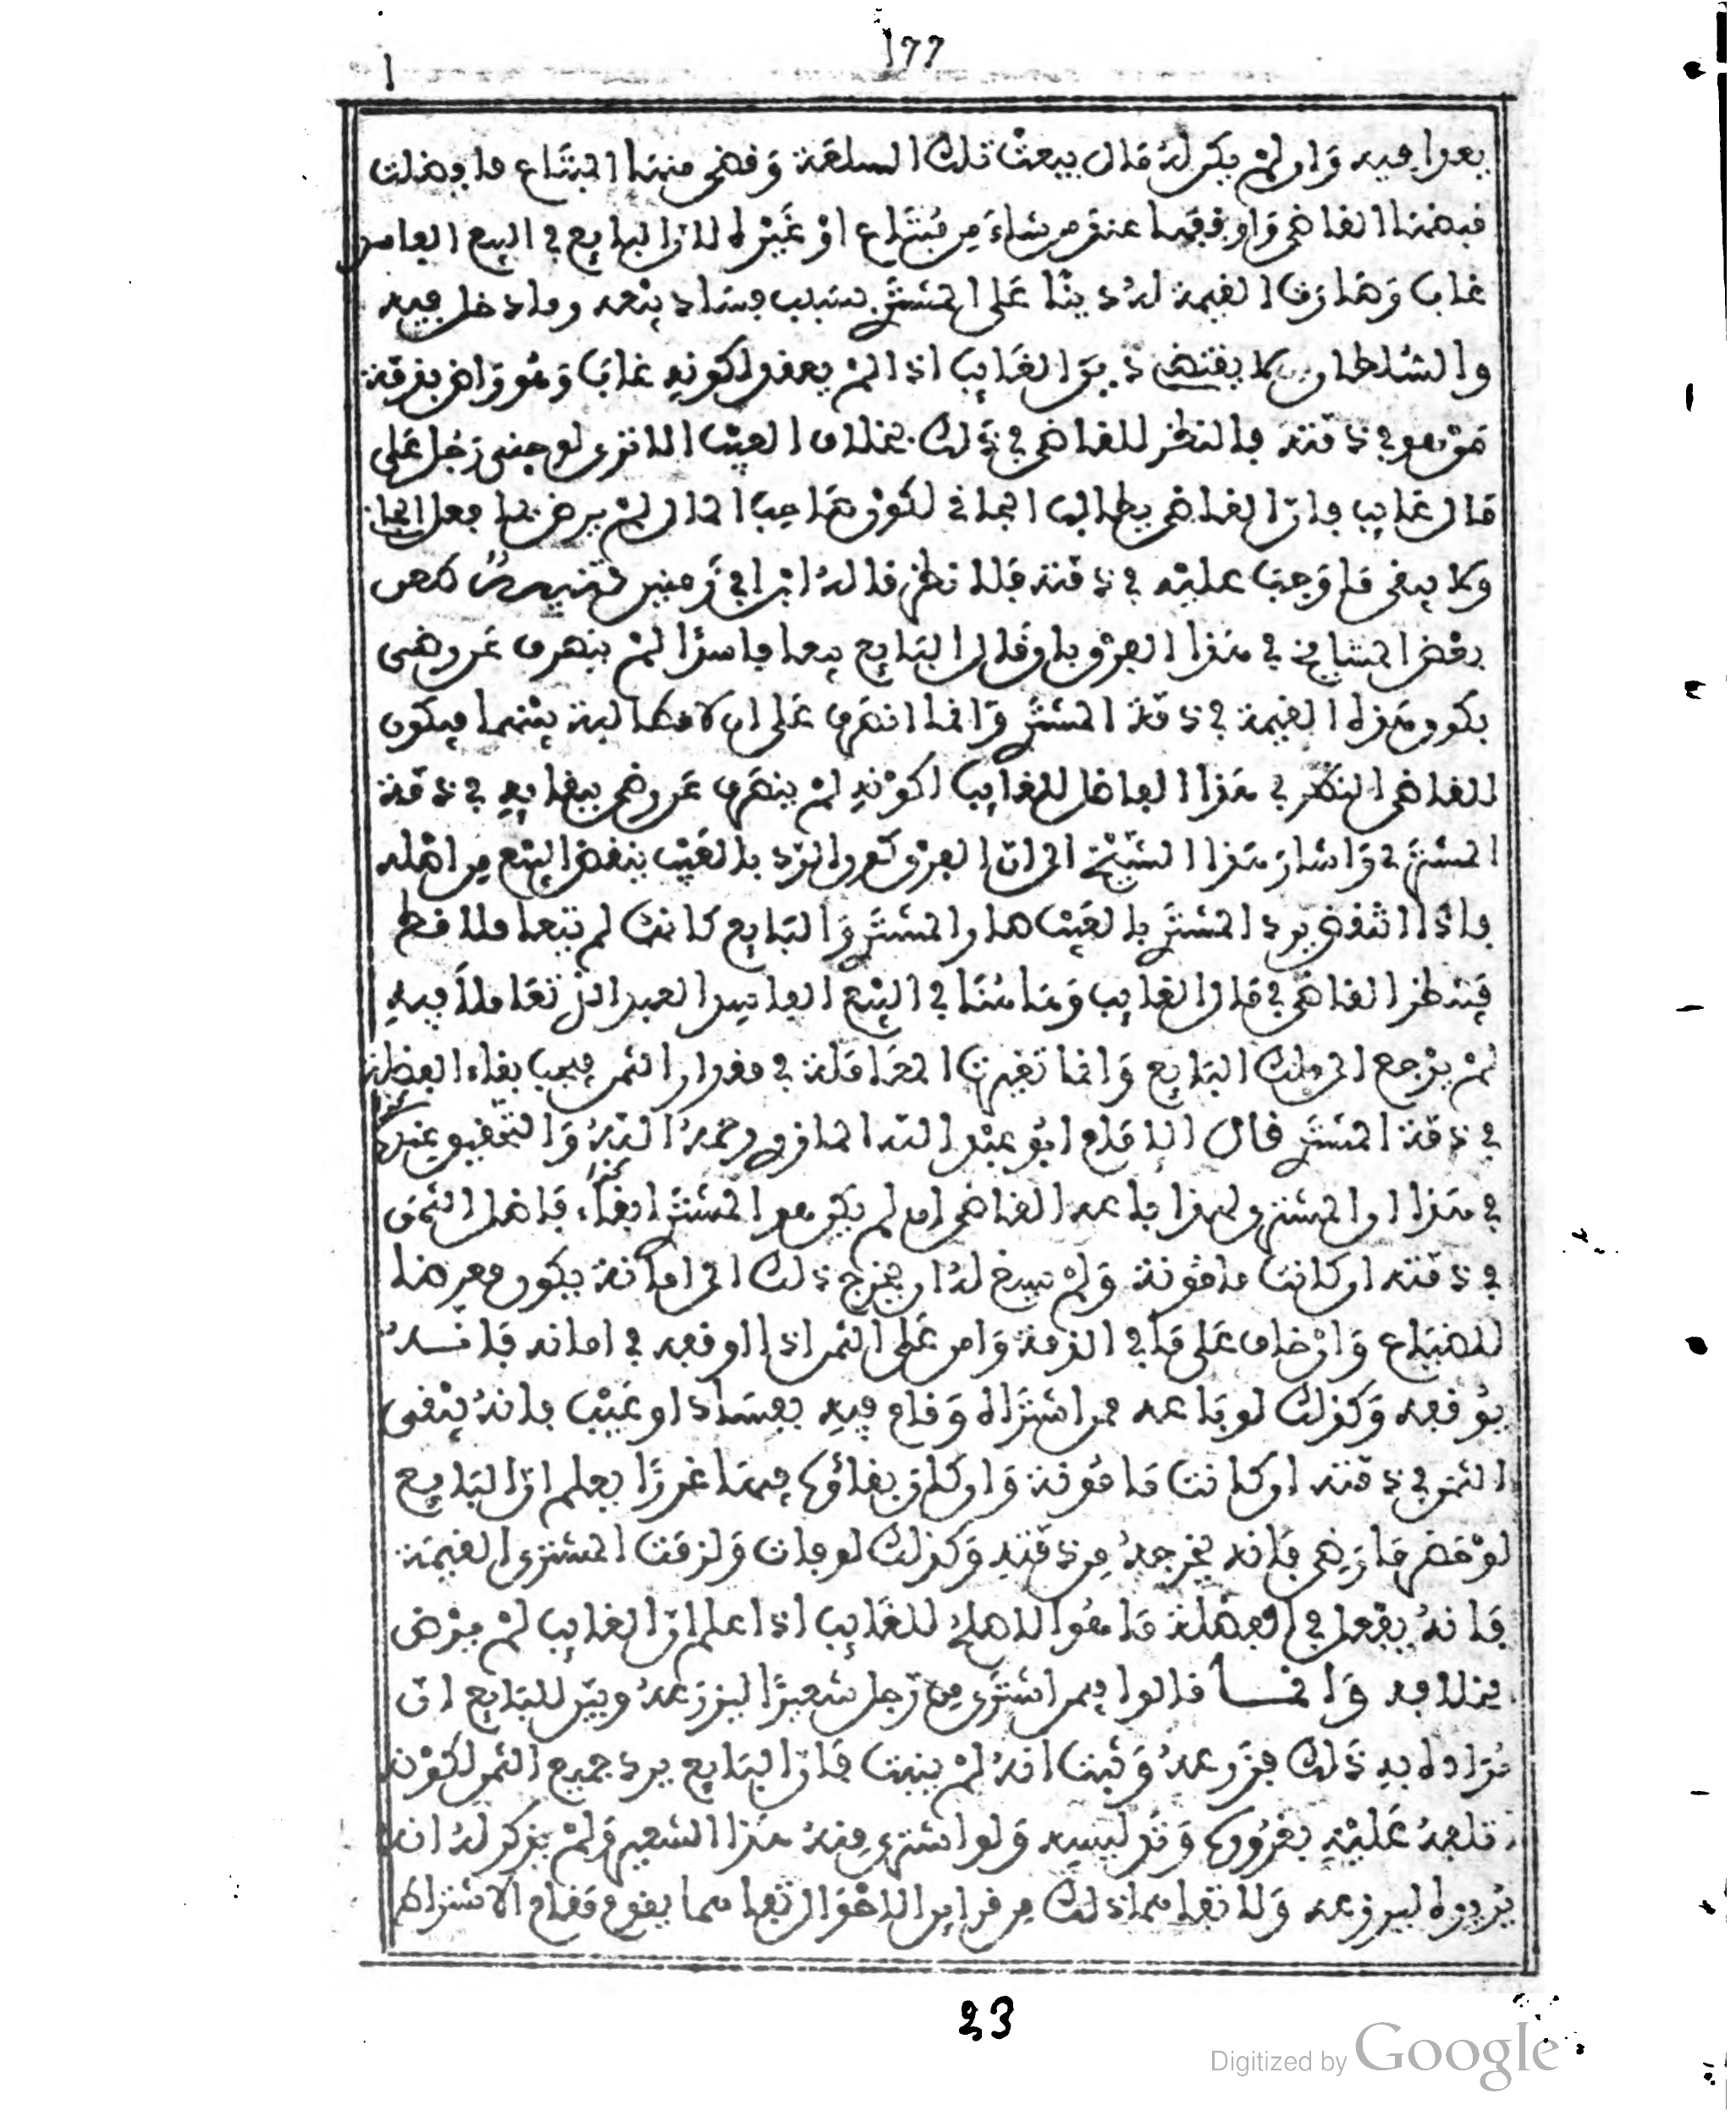 177
يعدا فيه وان لم يكن له مال بيعت تلك السلعة وقضى منها المبتاع ما فضلت
قبضها القاضي واوقفها عند من شاء من مبتاع او غيره لان البايع في البيع الفاسد
غاب وصارت القيمة له دينا على المشتري بسبب فساد بيعه وما دخل فيه
والسلطان لا يقتضي دين الغايب اذا لم يعقد لكونه غاب وهو راض ببقية
في ذمته فالنظر للقاضي في ذلك بخلاف العيب الا ترى لو جنى رجل على
مال غايب فان القاضي يطالب الجاني لكون صاحب المال لم يرض بما فعل الجا
ولا يبقي ما وجب عليه في ذمته بلا نظر قاله ابن ابي زمنين
بعض المشايخ في هذا الفرق بان قال البايع بيعا فاسدا لم ينصرف عن رضى
بكون هذه القيمة في ذمة المشتري وانما انصرف على ان لا مطالبة بينهما فيكون
للقاضي النظر في هذا الفاضل للغايب لكونه لم ينصرف عن رضى ببقايه في ذمة
المشتري واشار هذا الشيخ الى ان الفرق كون الرد بالعيب ينقض البيع من اصله
واذا انتقض برد المشتري بالعيب صار المشتري والبايع كانهما لم يتبعا ملا قط
فينظر القاضي في مال الغايب وهاهنا في البيع الفاسد العبد الذي تعاملا فيه
لم يرجع الى ملك البايع وانما تغيرت المعاملة في مقدار الثمن فيجب بقاء الفضلة
في ذمة المشتري قال الامام ابو عبد الله المازري رحمه الله والتحقيق عندي
في هذا ان المشتري لهذا باعه القاضي ان لم يكن هو المشتري ابقاء باقل الثمن
في ذمته ان كانت مامونة ولم يسغ له ان يخرج ذلك الى امانة يكون معرضا
للضياع وان خاف على ما في الذمة وامن على الثمن اذا اوقفه في امانه فانـه
يوقفه وكذلك لو باعه ممن اشتراه وقام فيه بفساد او عيب فانه يبقى
الثمن في ذمته ان كانت مامونة وان كان بقاؤها فيها غررا يعلم ان البايع
لو حضر ما رضي فانه يخرجه من ذمته وكذلك لو مات ولزمت المشتري القيمة
فانه يفعل في الفضلة ما هو الاصلح للغايب اذا علم ان الغايب لم يرض
بخلافه وانمـا قالوا فيمن اشترى من رجل شعيرا ليزرعه وبين للبايع ان
مراده به ذلك فزرعه وثبت انه لم ينبت فان البايع يرد جميع الثمن لكونه
تلفه عليه بغروره وتدليسه ولو اشترى منه هذا الشعير ولم يذكر له انه
يريده ليزرعه ولا تقاما ذلك من قراين الاحوال تقاما مما يقوم مقام الاشتراط
23
Digitized by Google